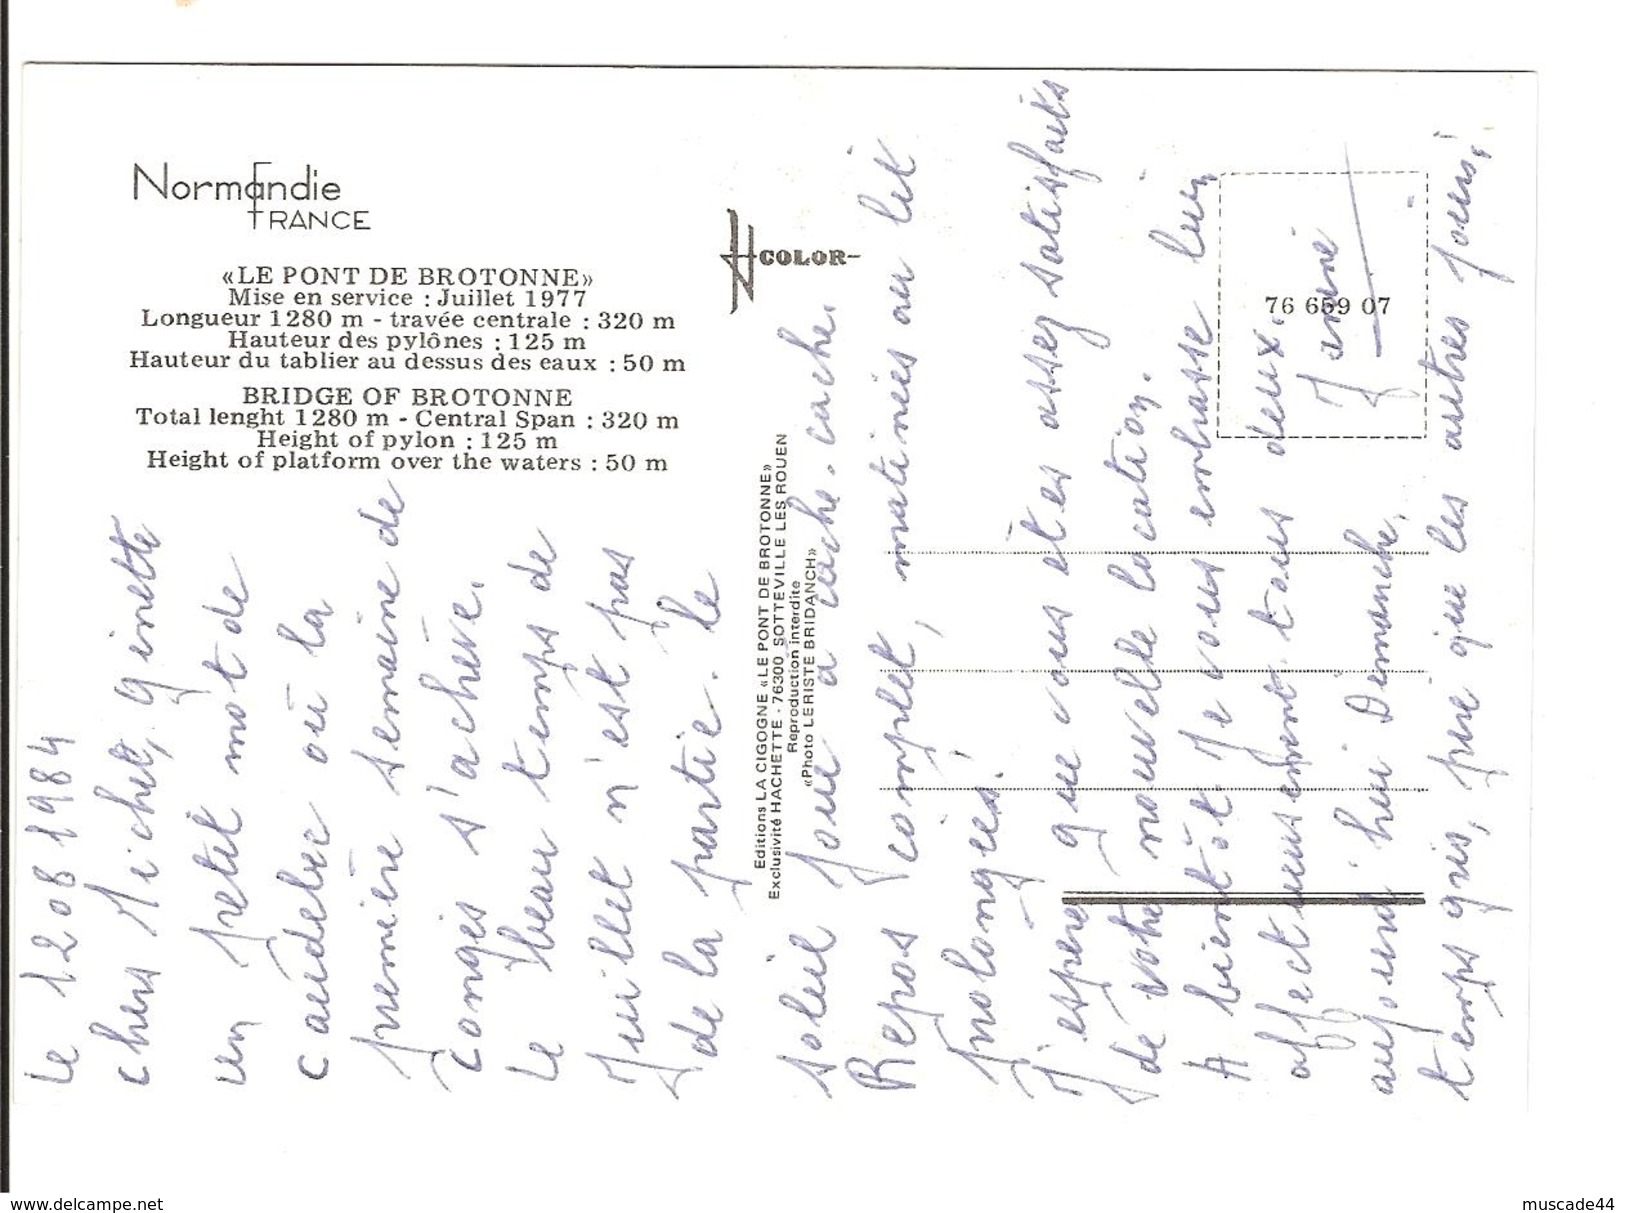 Normandie
FRANCE
«LE PONT DE BROTONNE»
Mise en service : Juillet 1977
Longueur 1280 m - travée centrale : 320 m
Hauteur des pylônes : 125 m
Hauteur du tablier au dessus des eaux : 50 m
BRIDGE OF BROTONNE
Total lenght 1280 m - Central Span : 320 m
Height of pylon : 125 m
Height of platform over the waters : 50 m
COLOR-
76 659 07
Editions LA CIGOGNE «LE PONT DE BROTONNE»
Exclusivité HACHETTE - 76300 SOTTEVILLE LES ROUEN
Reproduction interdite
«Photo LERISTE BRIDANCH»
Le 12 08 1984
Chers Michel, ginette
un petit mot de
Caudebec où la
première semaine de
congés s'achève.
Le beau temps de
Juillet n'est pas
de la partie. Le
soleil joue à cache-cache.
Repos complet, matinées au lit
prolongées!
J'espère que vous êtes assez satisfaits
de votre nouvelle location.
A bientôt. Je vous embrasse bien
affectueusement tous deux.
aujourd'hui Dimanche,
temps gris, pire que les autres jours!